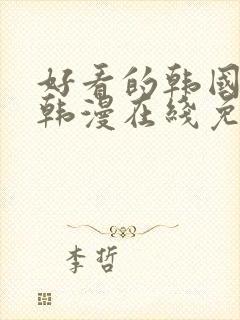 好看的韩国
韩漫在线免
李哲